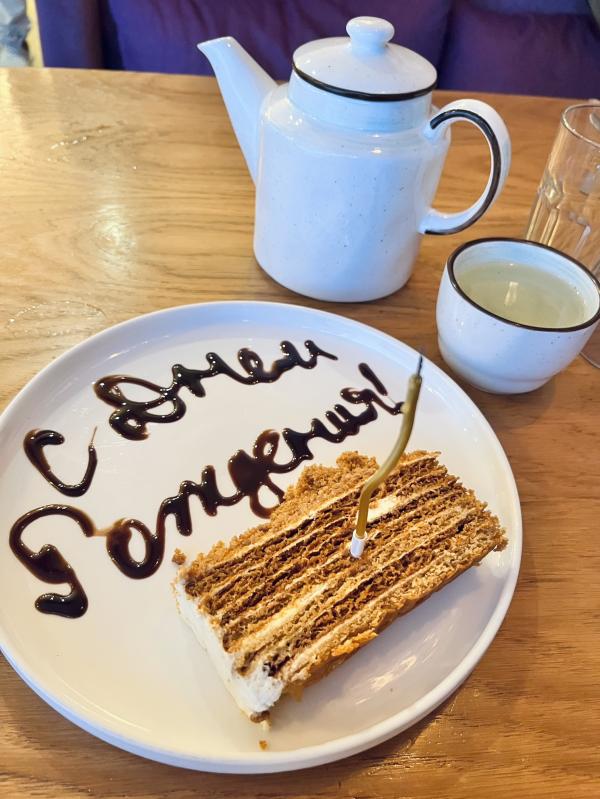 С Днем
Рождения!